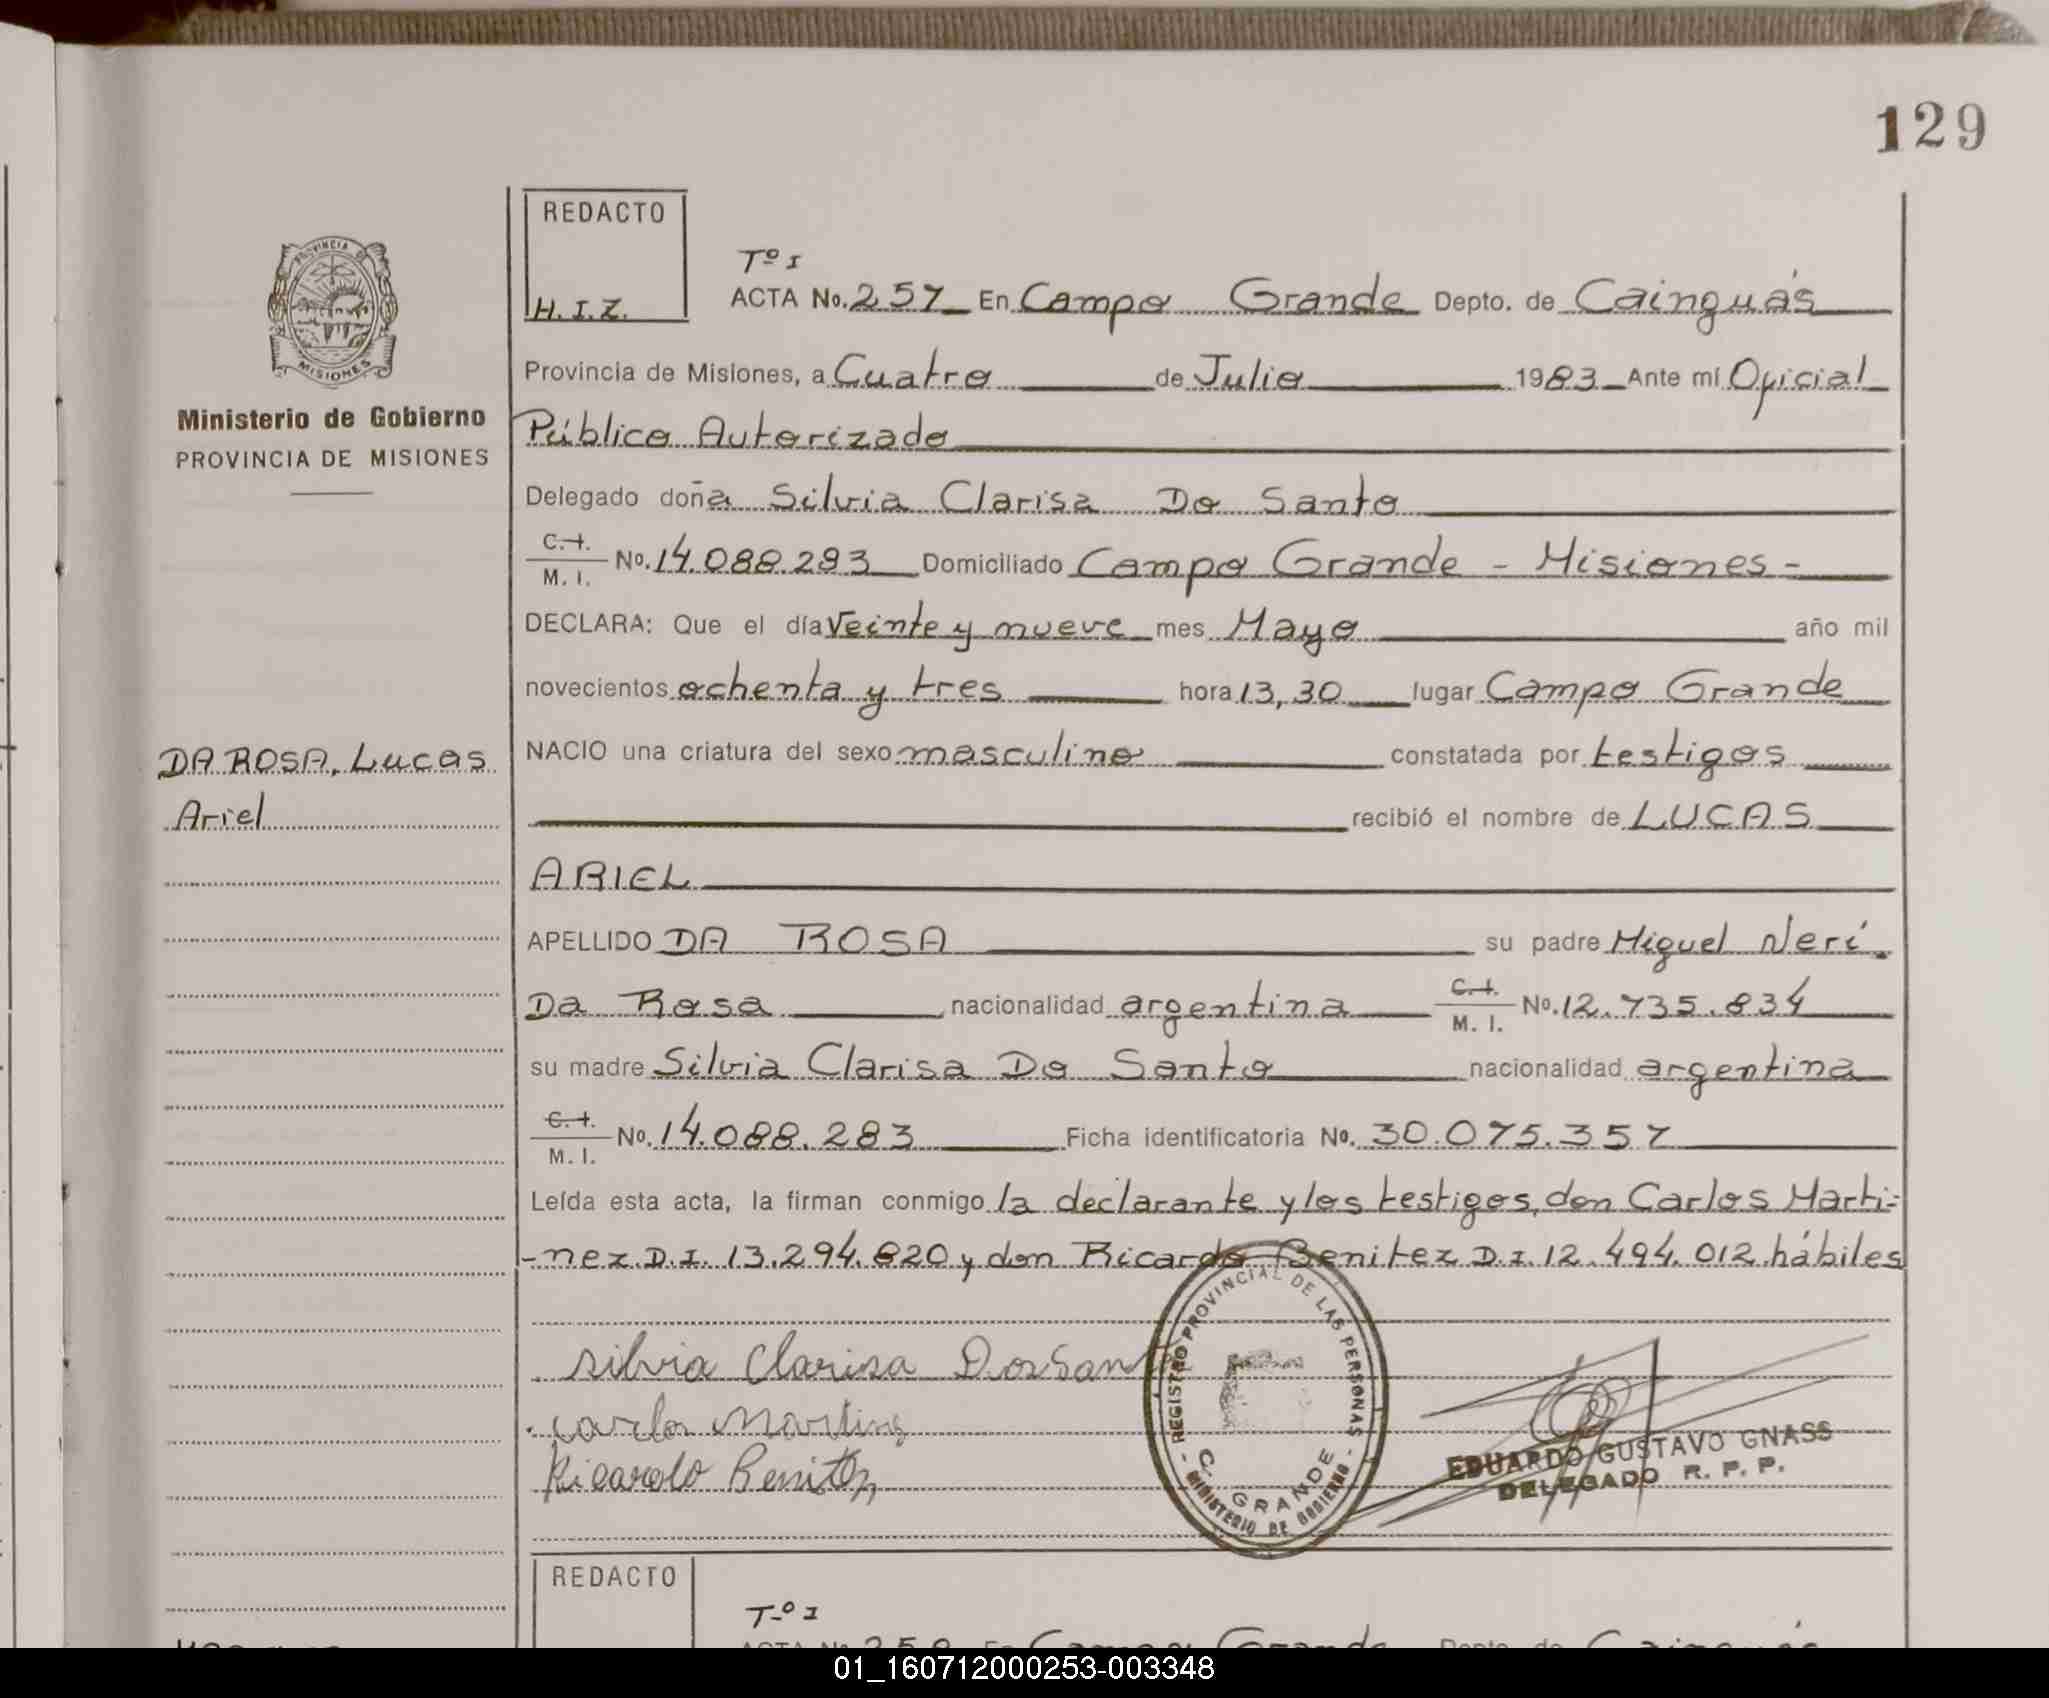 129
REDACTO
H. I. Z.
Tº I
ACTA No. 257 En Campo Grande Depto. de Cainguás
Provincia de Misiones, a Cuatro de Julio 1983 Ante mí Oficial
Público Autorizado
Delegado doña Silvia Clarisa Do Santo
C. I.
M. I. No. 14.088.283 Domiciliado Campo Grande - Misiones -
DECLARA: Que el día Veinte y nueve mes Mayo año mil
novecientos ochenta y tres hora 13,30 lugar Campo Grande
NACIO una criatura del sexo masculino constatada por testigos
recibió el nombre de LUCAS
ARIEL
APELLIDO DA ROSA su padre Miguel Nerí
Da Rosa nacionalidad argentina C. I. M. I. No. 12.735.834
su madre Silvia Clarisa Do Santo nacionalidad argentina
C. I.
M. I. No. 14.088.283 Ficha identificatoria No. 30.075.357
Leída esta acta, la firman conmigo la declarante y los testigos, don Carlos Marti-
-nez D.I. 13.294.820 y don Ricardo Benitez D.I. 12.494.012 hábiles
Silvia Clarisa Dos San
Carlos Martins
Ricardo Benitez
REGISTRO PROVINCIAL DE LAS PERSONAS
C. GRANDE
MINISTERIO DE GOBIERNO
EDUARDO GUSTAVO GNASS
DELEGADO R. P. P.
PROVINCIA DE
MISIONES
Ministerio de Gobierno
PROVINCIA DE MISIONES
DA ROSA, Lucas
Ariel
REDACTO
Tº I
ACTA No. 258 En Campo Grande Depto. de Cainguás
01_160712000253-003348